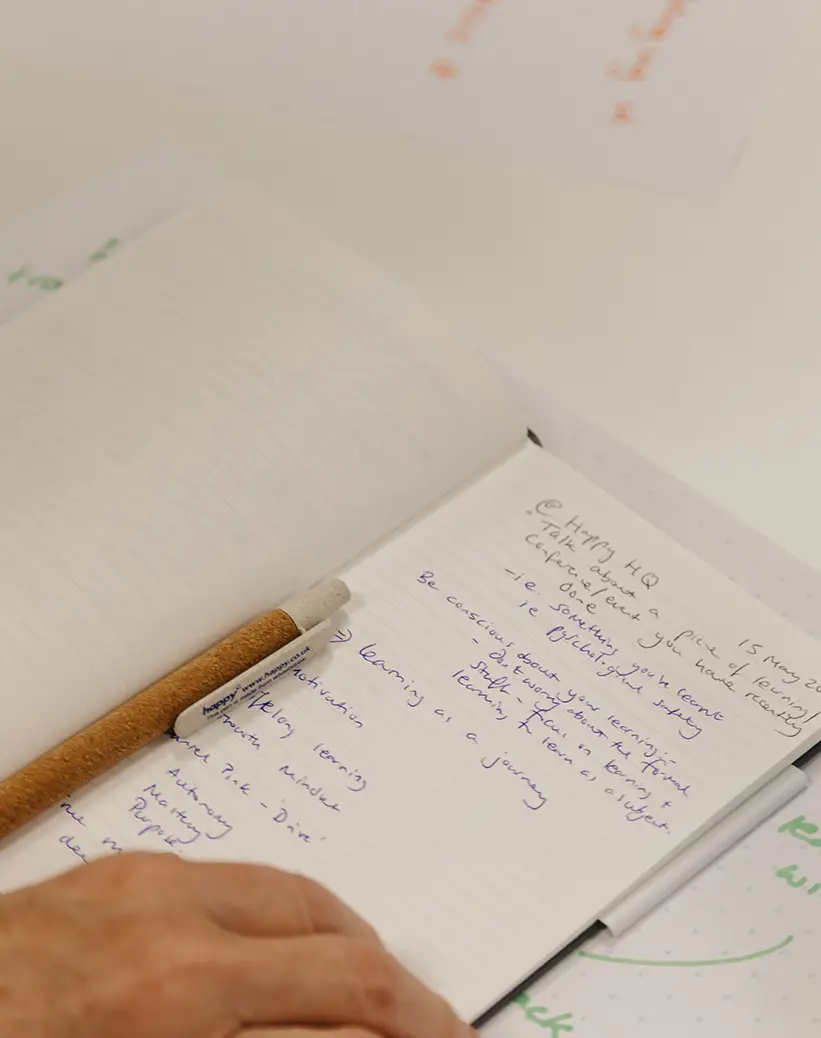 15 May 20
@ Happy HQ
- Talk about a piece of learning/
conference/event you have recently
done
- i.e. something you've learnt
ie psychological safety
Be conscious about your learning:-
- Don't worry about the formal
stuff - focus on learning +
learning to learn as a subject.
=> learning as a journey
Motivation
lifelong learning
Growth Mindset
Pink - 'Drive'
Autonomy
Mastery
Purpose.
happy www.happy.co.uk